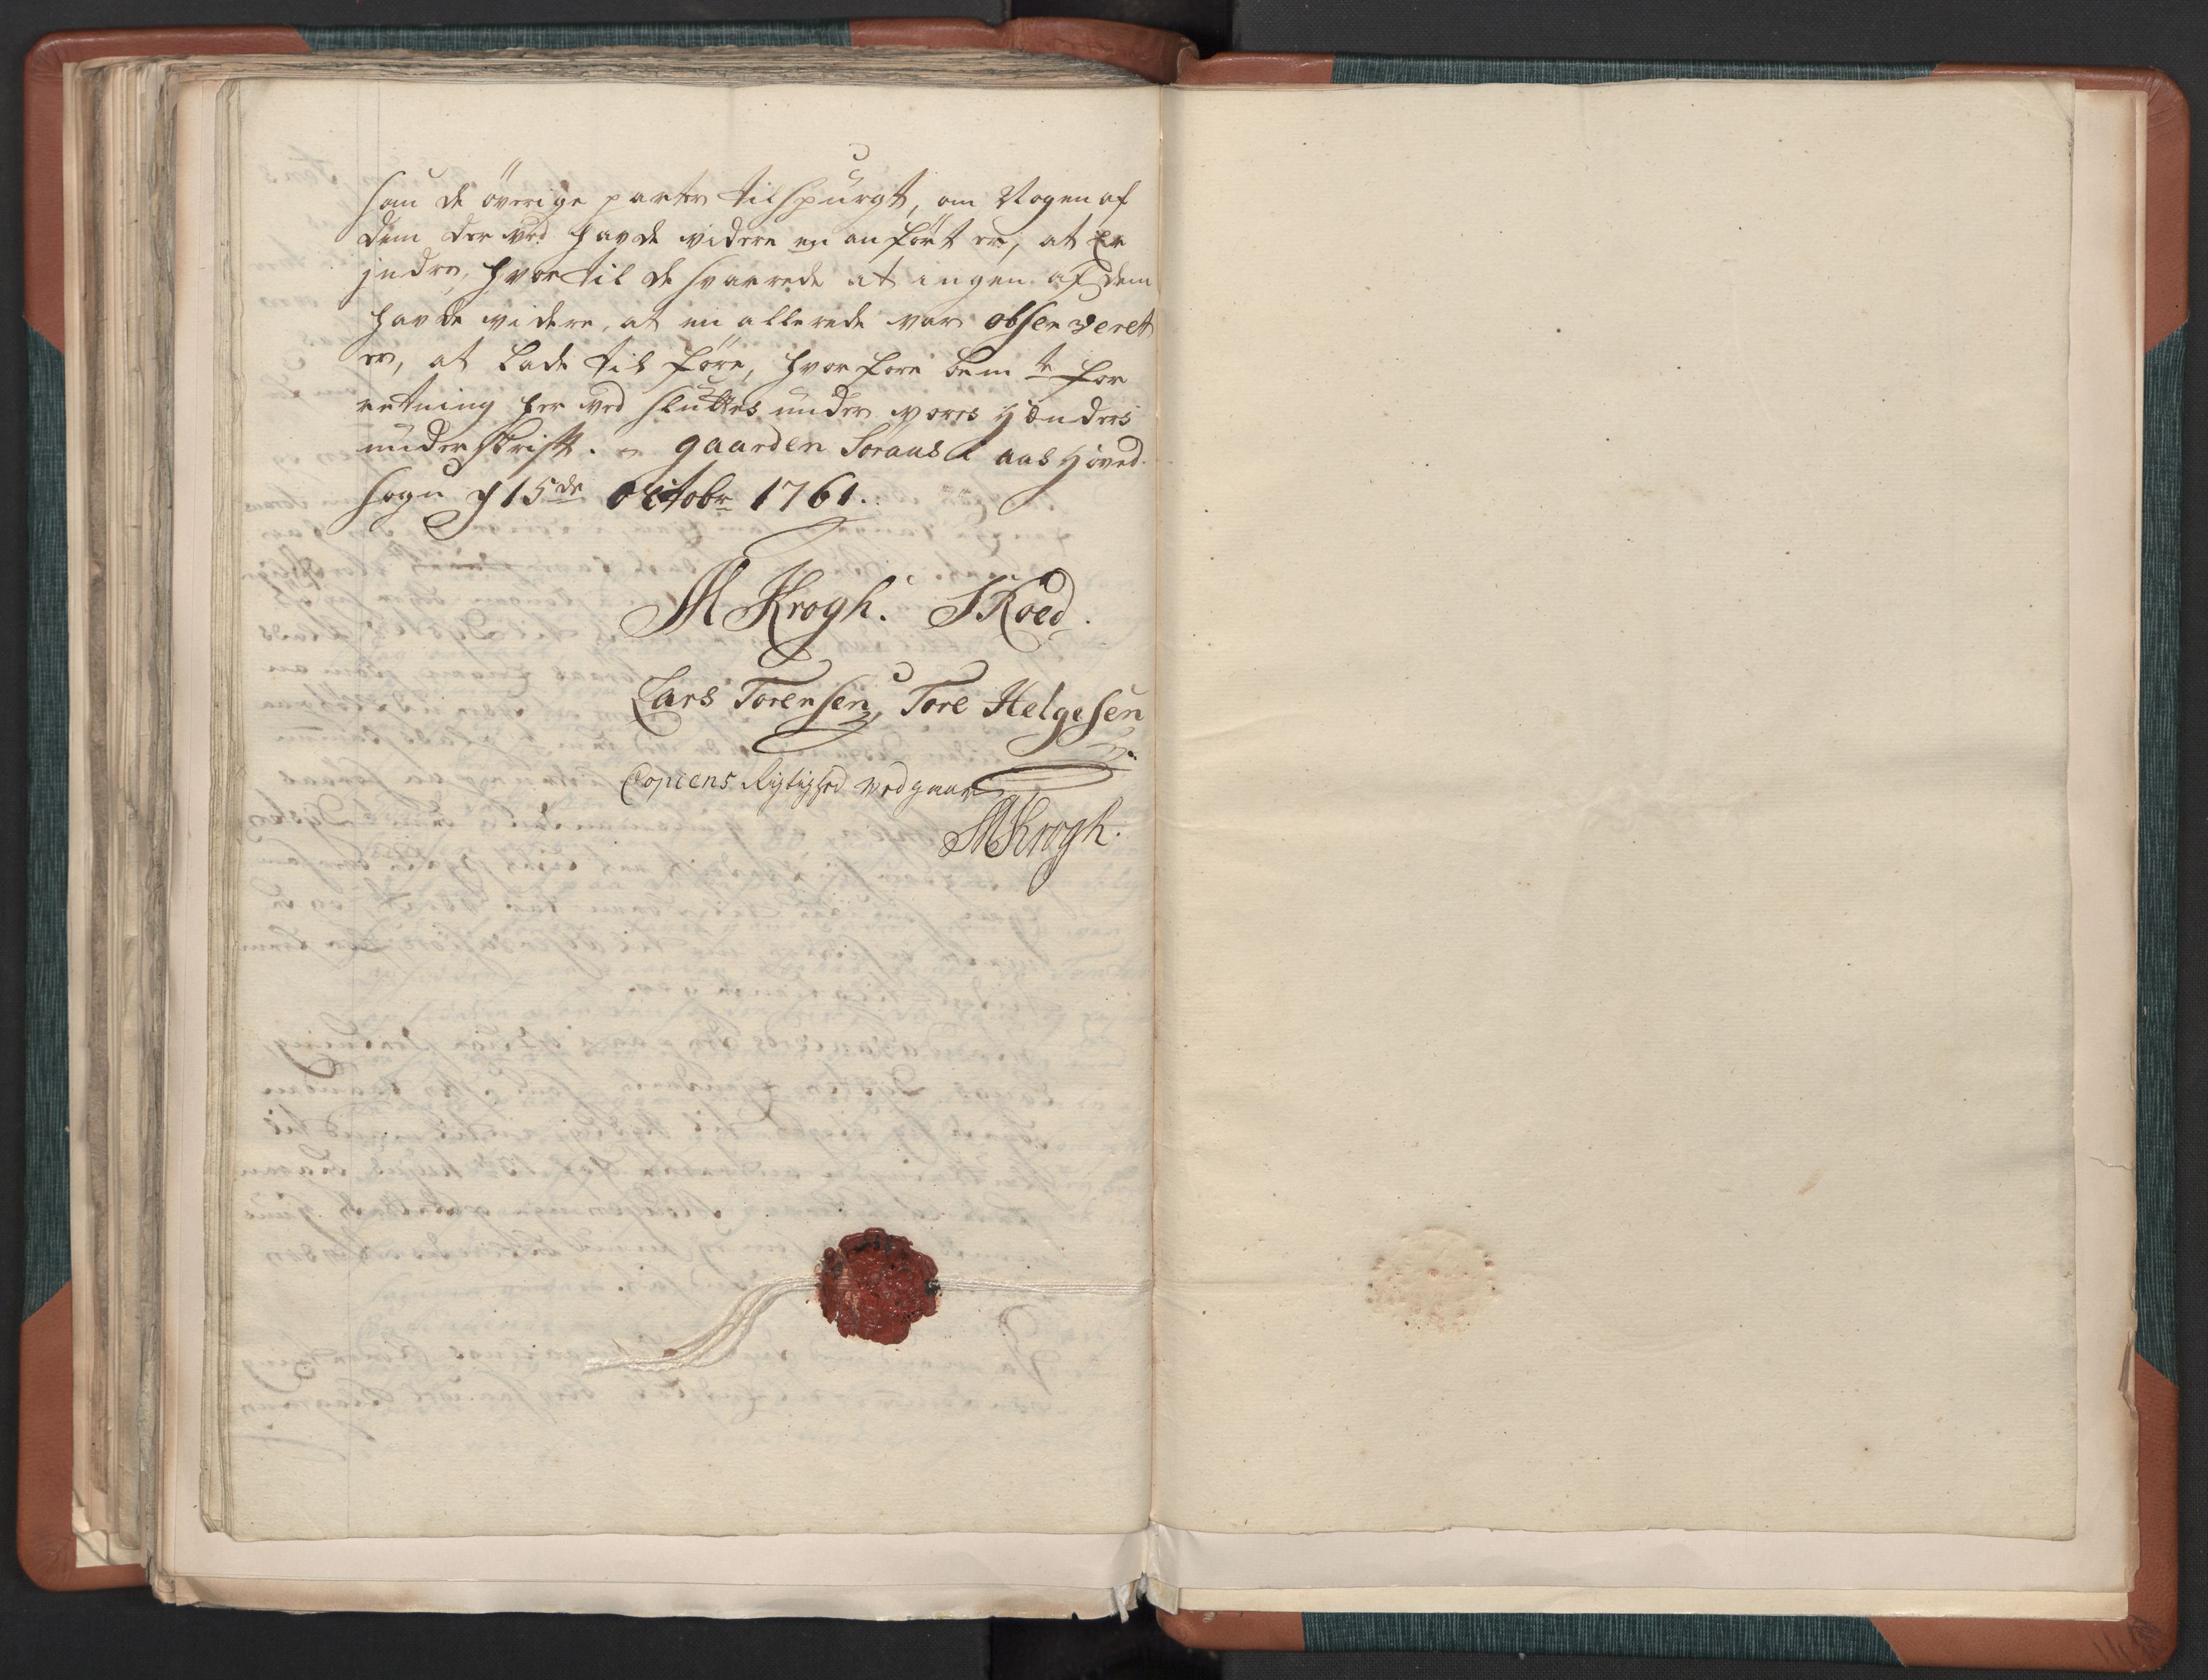 som de överige parter tilspurgt, om Nogen af
dem der ved havde videre en anfört er, at er
jndre, hvortil de svarrede at ingen af dem
havde videre, at en allerede var observeret
er, at lade til före, hvorfore bemte for
retning her ved sluttes under vores Hænders
underskrift. gaarden Soraas i aas Hoved
sogn d 15de Octobr 1761.
M Krogh. S Roed.
Lars Torensen, Tore Helgesen
Copiens Rigtighed vedgaar
M Krogh.